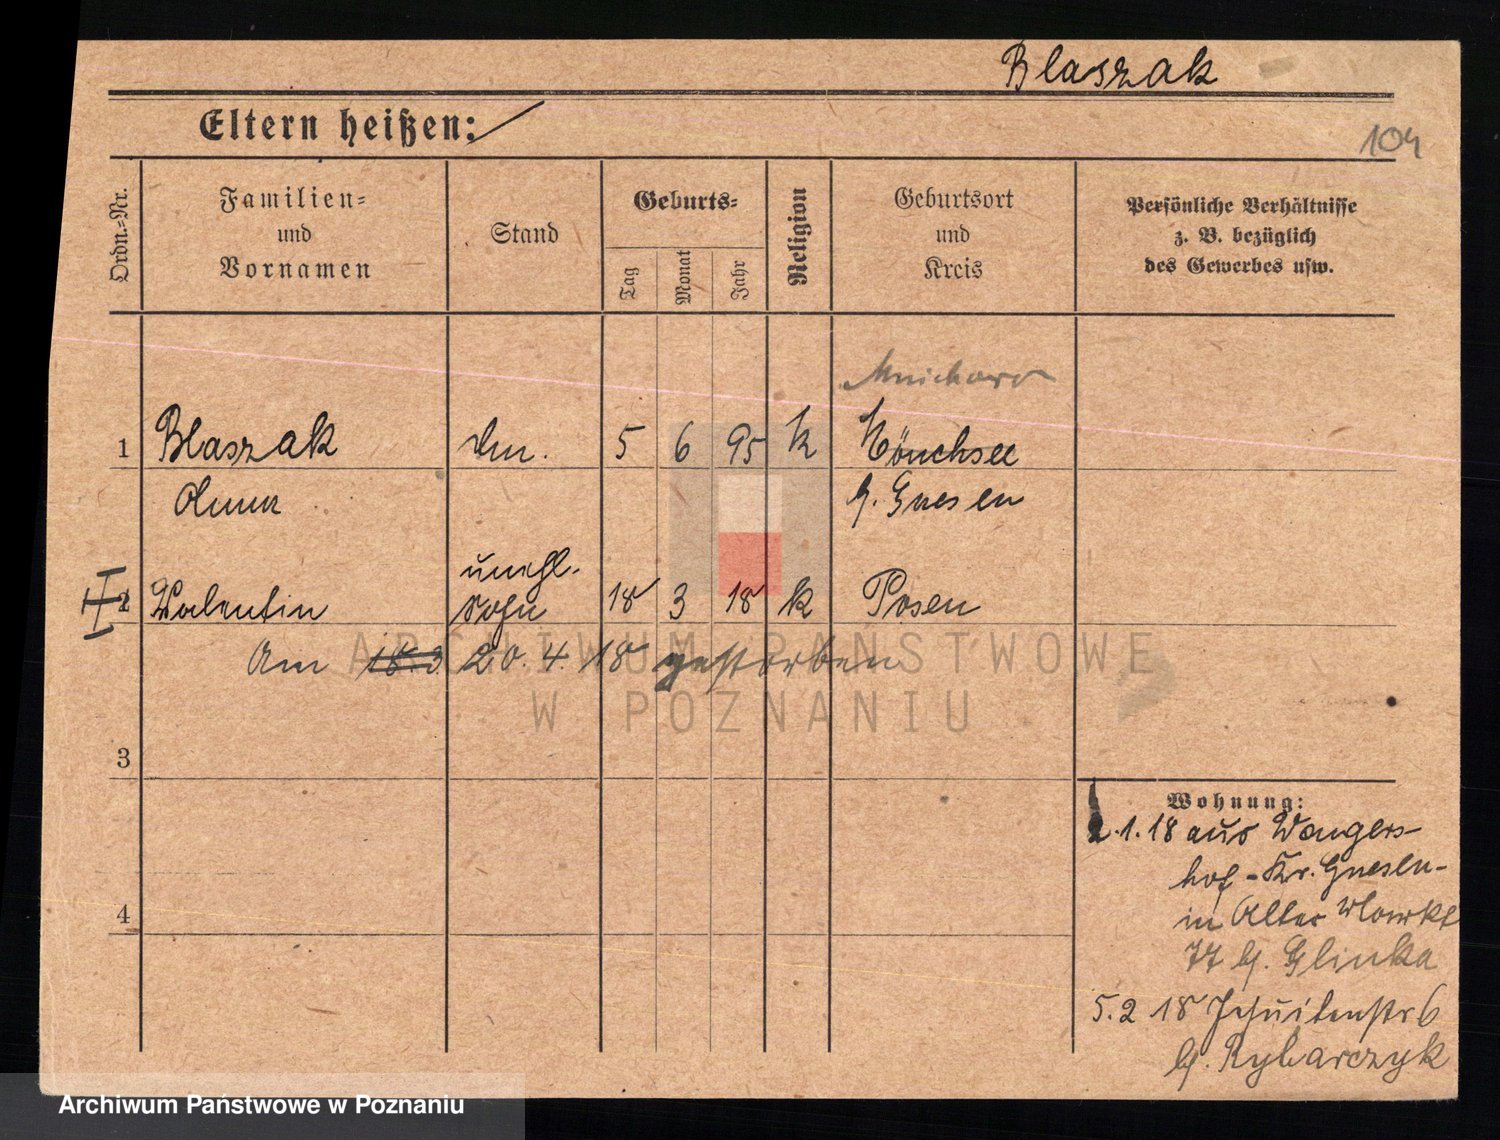 Blaszak
Eltern heißen:
104
Ordn.-Nr.
Familien-
und
Vornamen
Stand
Geburts-
Tag
Monat
Jahr
Religion
Geburtsort
und
Kreis
Persönliche Verhältnisse
z. B. bezüglich
des Gewerbes usw.
Mnichowo
1 Blaszak 5 6 95 k Mönchsee
Anna Gnesen
unehl.
2 Valentin Sohn 18 3 18 k Posen
Am 18.3 20. 4. 18 gestorben
ARCHIWUM PAŃSTWOWE
W POZNANIU
3
4
Wohnung:
2.1.18 aus Wangers-
hof - Kr. Gnesen -
in Alter Markt
77 b. Glinka
5.2 18 Jesuitenstr 6
b. Rybarczyk
Archiwum Państwowe w Poznaniu